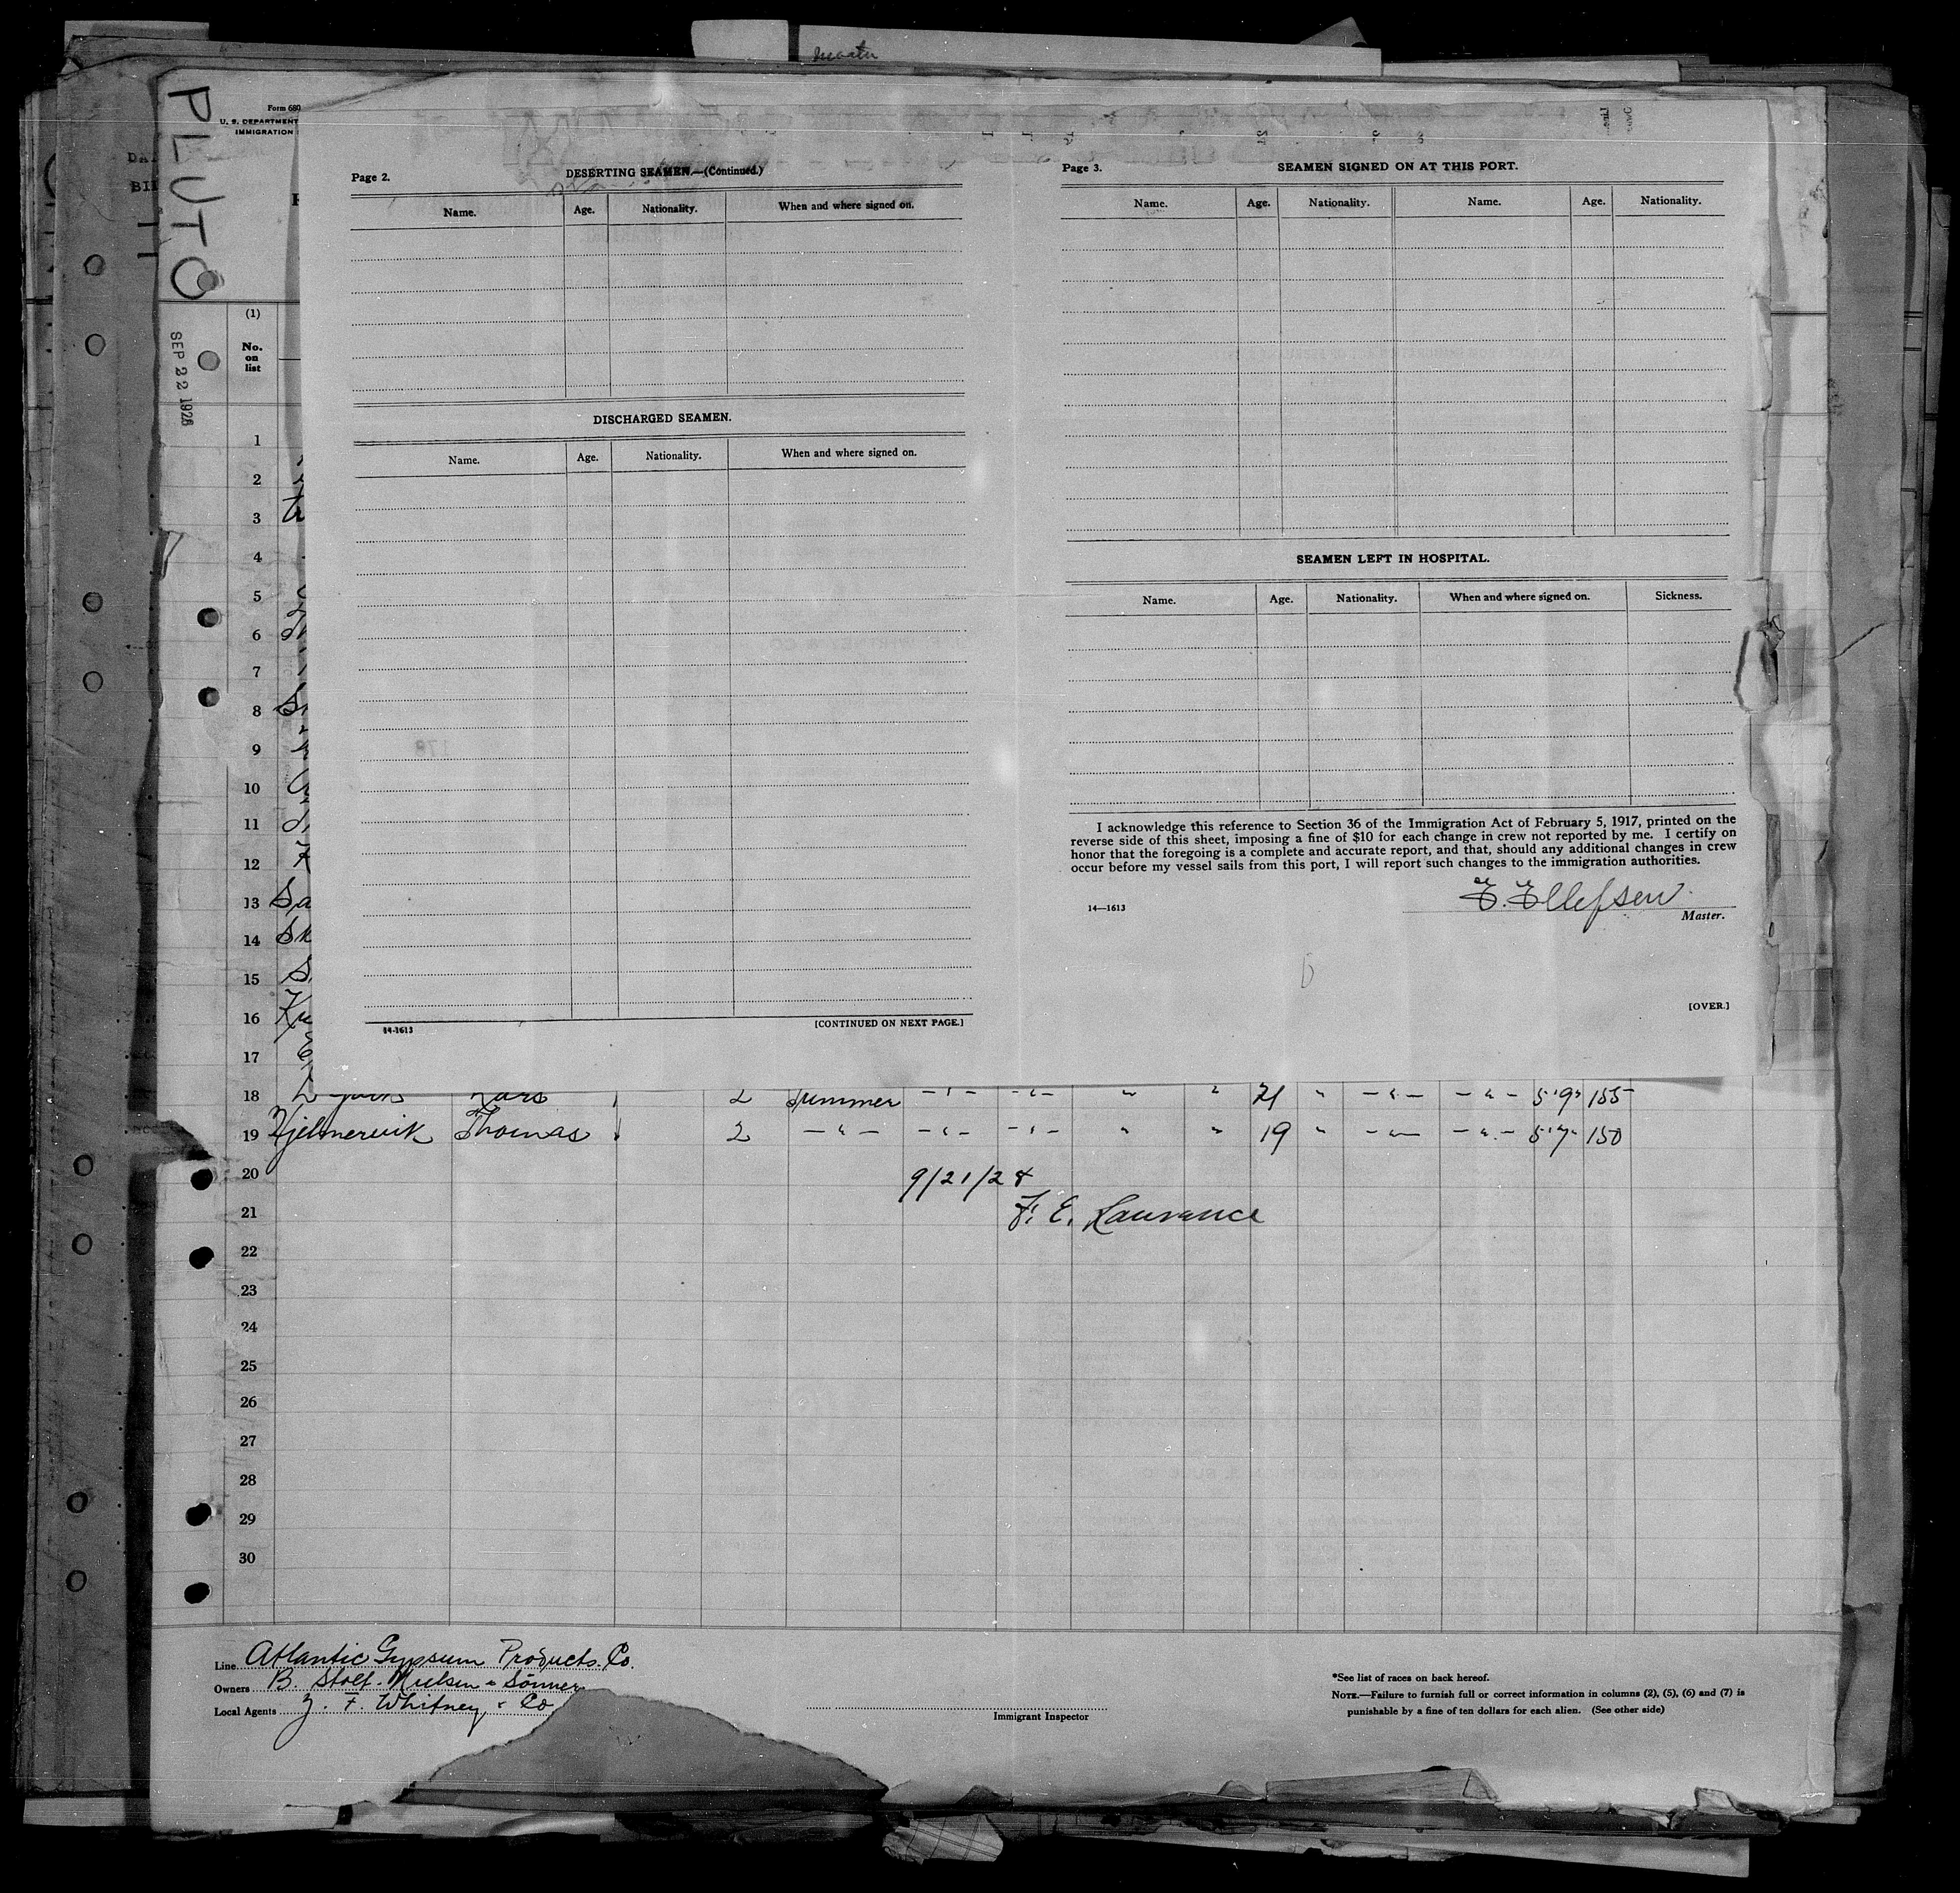 PLUTO
SEP 22 1928
Form 680
U. S. DEPARTMENT
IMMIGRATION
(1)
No.
on
list
Page 2.
DESERTING SEAMEN.—(Continued.)
Name. Age. Nationality. When and where signed on.
DISCHARGED SEAMEN.
Name. Age. Nationality. When and where signed on.
14-1613
[CONTINUED ON NEXT PAGE.]
Page 3.
SEAMEN SIGNED ON AT THIS PORT.
Name. Age. Nationality. Name. Age. Nationality.
SEAMEN LEFT IN HOSPITAL.
Name. Age. Nationality. When and where signed on. Sickness.
I acknowledge this reference to Section 36 of the Immigration Act of February 5, 1917, printed on the
reverse side of this sheet, imposing a fine of $10 for each change in crew not reported by me. I certify on
honor that the foregoing is a complete and accurate report, and that, should any additional changes in crew
occur before my vessel sails from this port, I will report such changes to the immigration authorities.
E. Ellefsen
Master.
14—1613
[OVER.]
1
2
3
4
5
6
7
8
9
10
11
12
13 Sa
14 Sk
15 S
16
17
18 Lars 2 21 " 5'9" 155
19 Hjelmervik Thomas 2 19 " 5'7" 150
20 9/21/28
21 F. E. Lawrance
22
23
24
25
26
27
28
29
30
Line Atlantic Gypsum Products. Co.
Owners B. Stolt-Nielsen & Sønner
Local Agents J. F. Whitney & Co
Immigrant Inspector
*See list of races on back hereof.
NOTE.—Failure to furnish full or correct information in columns (2), (5), (6) and (7) is
punishable by a fine of ten dollars for each alien. (See other side)